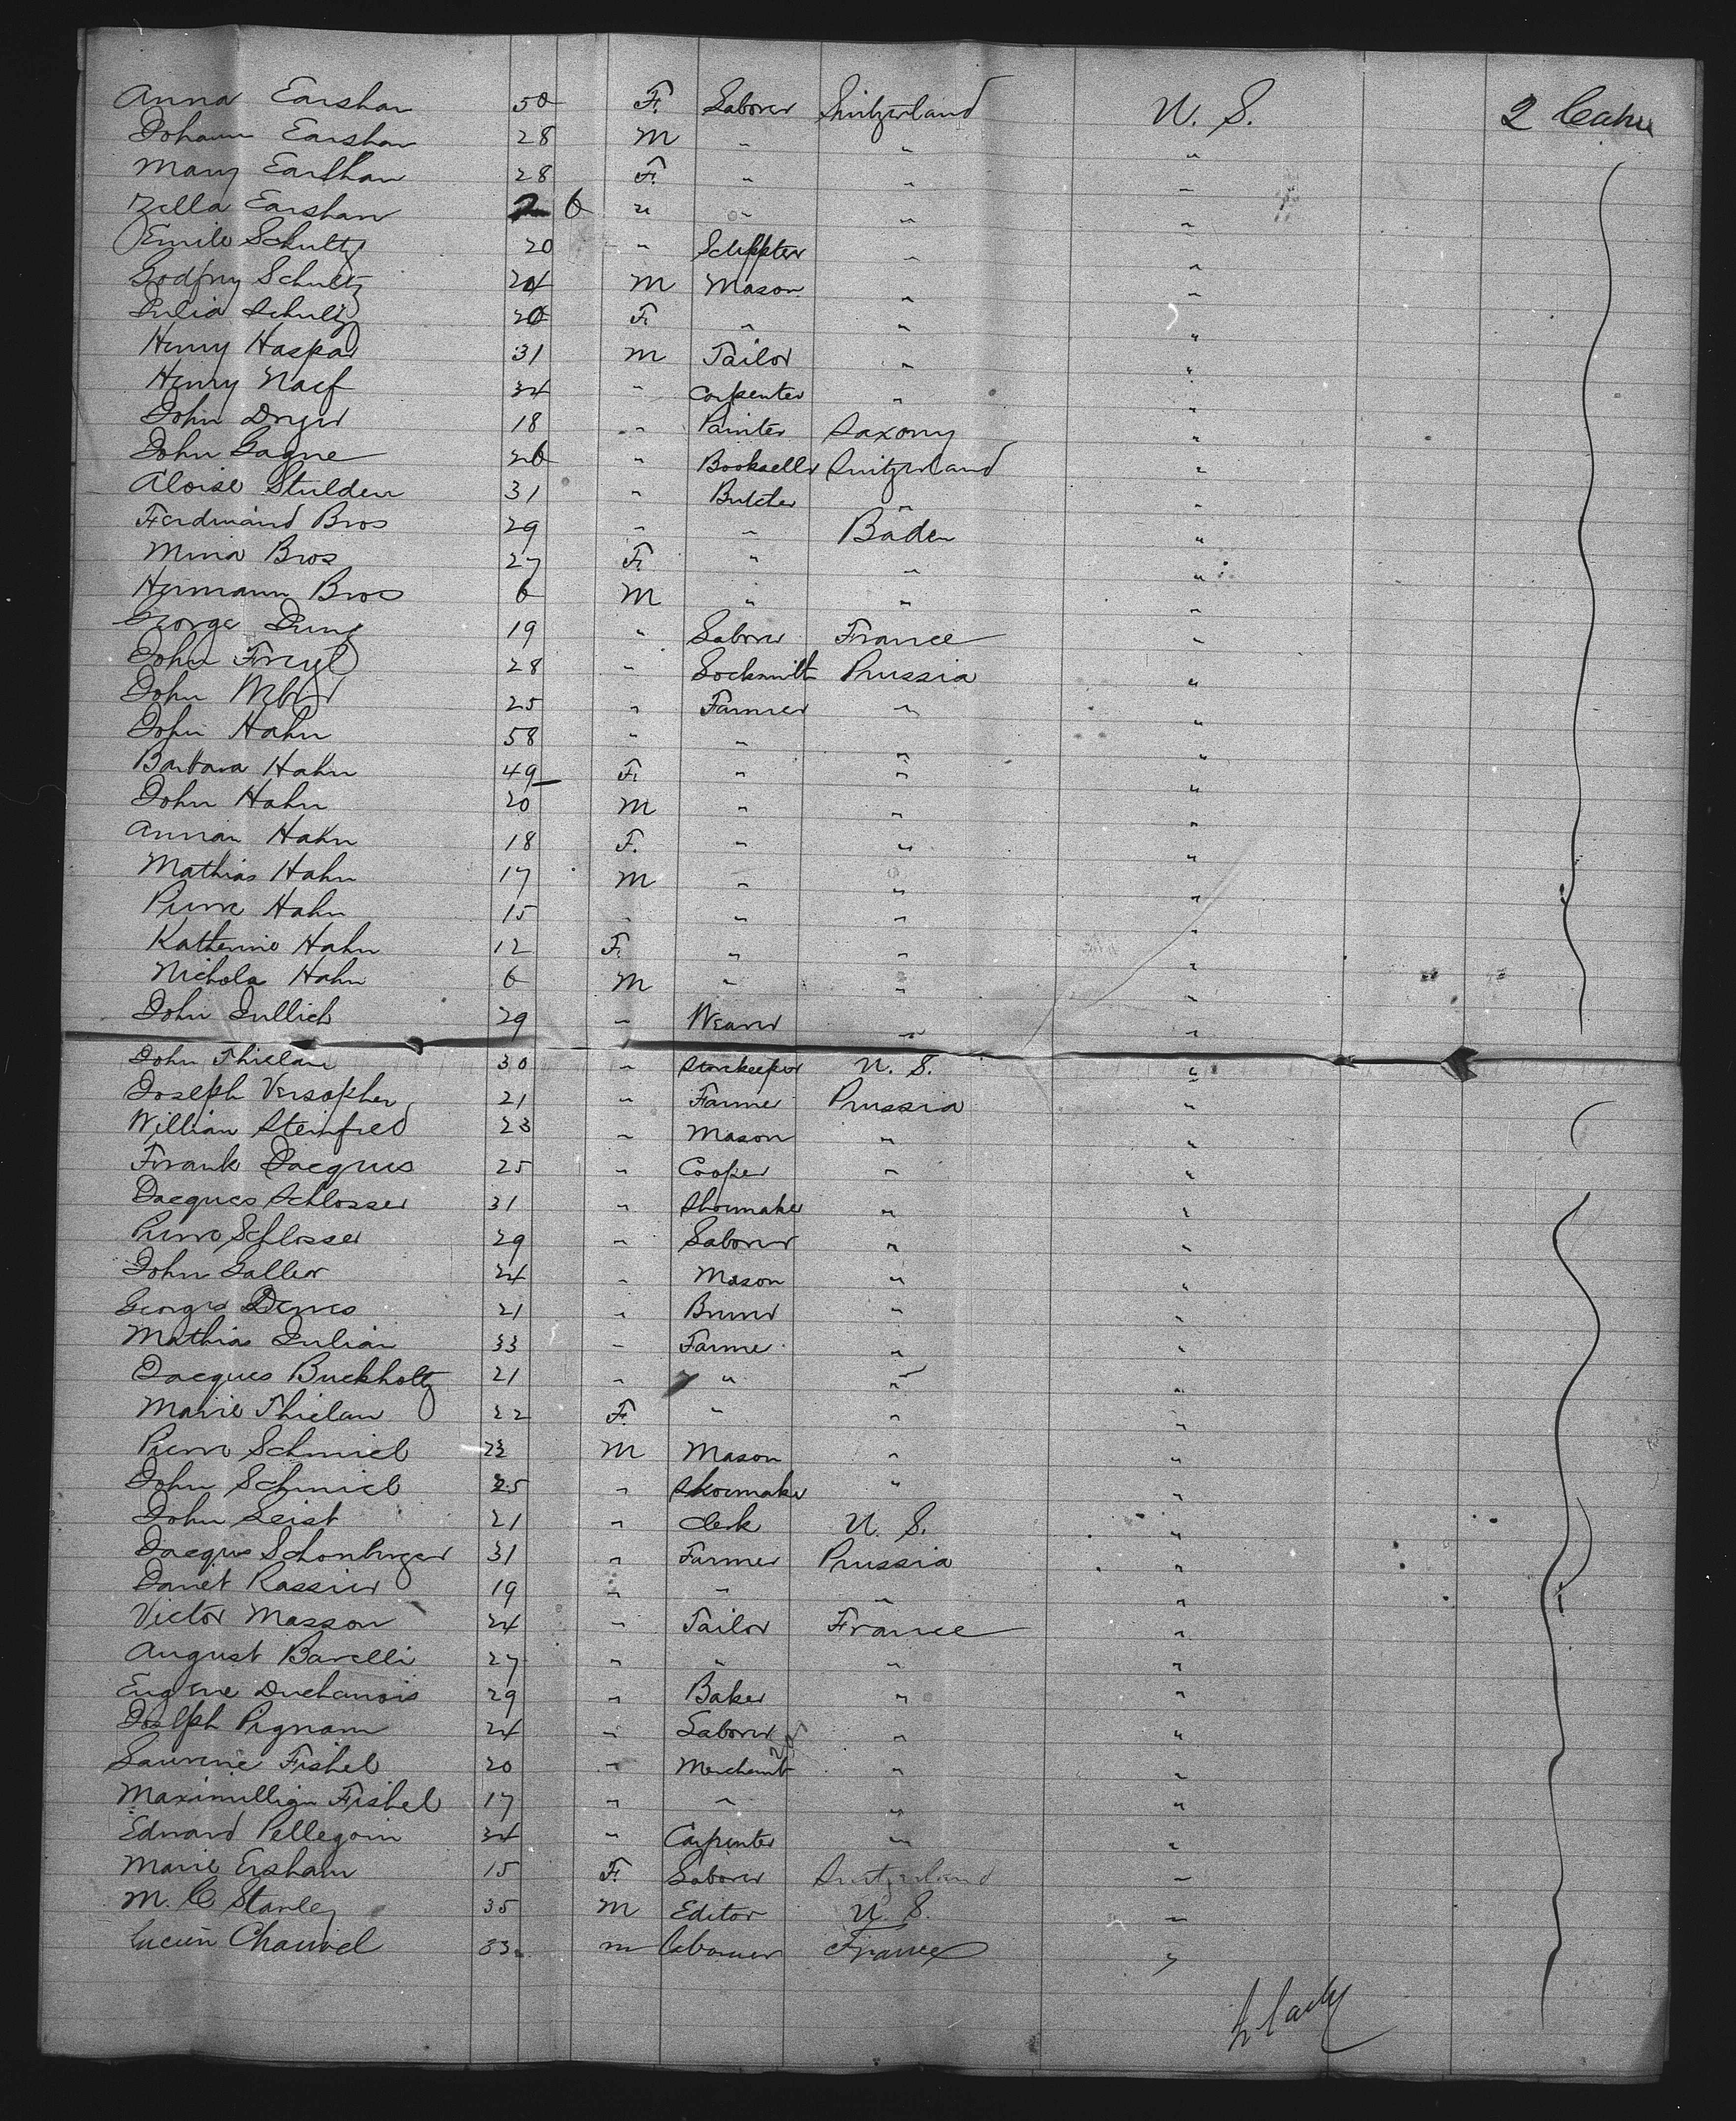 Anna Earshan 50 F. Laborer Switzerland U. S. 2 Cabin
Johann Earshan 28 M " " "
Mary Earshan 28 F. " " "
Zella Earshan 6 " " " "
Emile Schultz 20 " " "
Godfry Schultz 24 M Mason " "
Julia Schultz 20 F. " " "
Henry Haspad 31 M Tailor " "
Henry Naef 34 " Carpenter " "
John Dryer 18 " Painter Saxony "
John Gagne 26 " Bookseller Switzerland "
Aloise Stulden 31 " Butcher " "
Ferdinand Bros 29 " " Baden "
Mina Bros 27 F. " " "
Hermann Bros 6 M " " "
George Jung 19 " Laborer France "
John Freyl 28 " Locksmith Prussia "
John Weber 25 " Farmer " "
John Hahn 58 " " " "
Barbara Hahn 49 F. " " "
John Hahn 20 M " " "
Annan Hahn 18 F. " " "
Mathias Hahn 17 M " " "
Pierre Hahn 15 " " " "
Katherine Hahn 12 F. " " "
Nichola Hahn 6 M " " "
John Jullich 29 " Weaver " "
John Thielan 30 " Storekeeper U. S. "
Joseph Versopher 21 " Farmer Prussia "
William Steinfied 23 " Mason " "
Frank Jacques 25 " Cooper " "
Jacques Schlosser 31 " Shoemaker " "
Pierre Schlosser 29 " Laborer " "
John Galler 24 " Mason " "
Georges Denis 21 " " "
Mathias Julian 33 " Farmer " "
Jacques Buckholtz 21 " " " "
Marie Thielan 22 F. " " "
Pierre Schmiel 23 M Mason " "
John Schmiel 25 " Shoemaker " "
John Leist 21 " Clerk U. S. "
Jacques Schonburger 31 " Farmer Prussia "
Rassier 19 " " " "
Victor Masson 24 " Tailor France "
August Barelli 27 " " " "
Eugene Duchanois 29 " Baker " "
Joseph Pignam 24 " Laborer " "
Laurence Fishel 20 " Merchant " "
Maximillian Fishel 17 " " " "
Edward Pellegoin 34 " Carpenter " "
Marie Ersham 15 F. Laborer Switzerland "
M. C Stanley 35 M Editor U. S. "
Lucien Chauvel 33 m Laborer France "